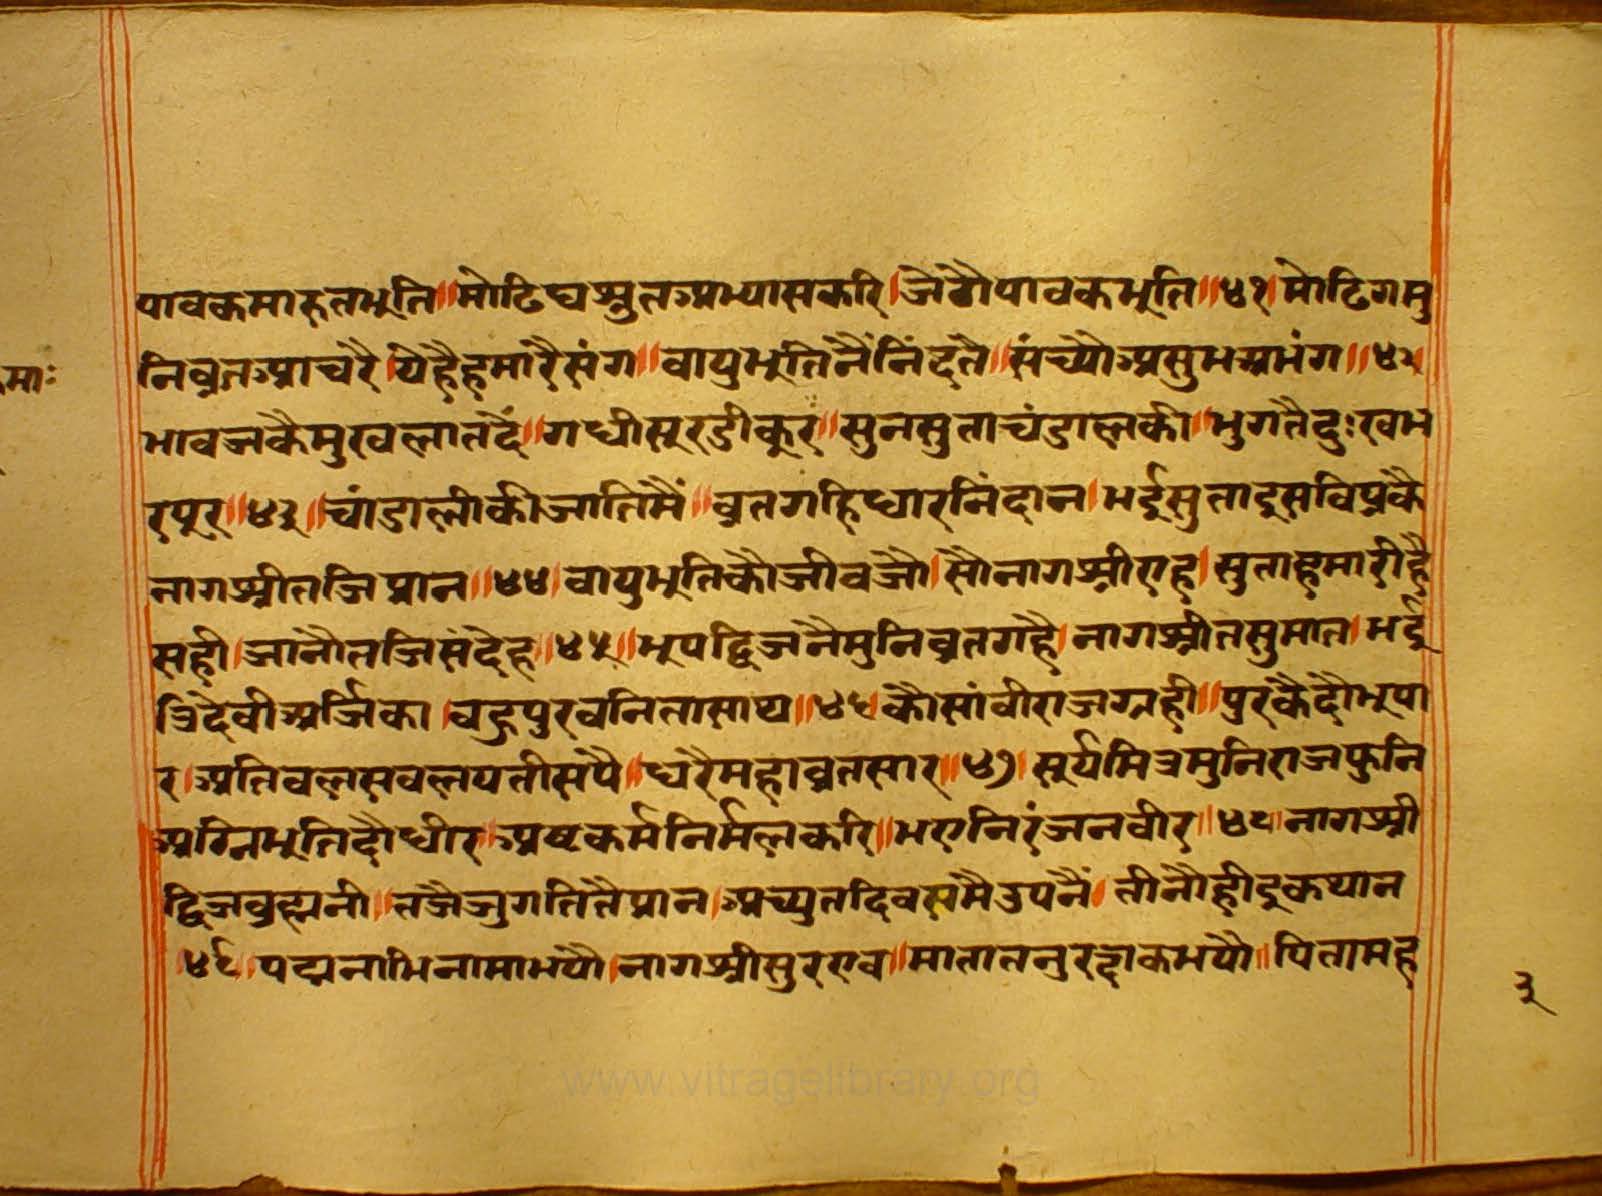 पावकमारुतभूति॥मोढिघश्रुतअभ्यासकरि।जैठौपावकभूति॥४१।मोढिगमु
माः
निव्रतआचरै।येहैहमारैसंग॥वायुभूतिनैंनिंदतै॥संच्यौअसुभअभंग॥४२
भावजकैमुखलातदैं॥गधीसूरडीकूर॥सुनसुताचंडालकी॥भुगतैदुःखभ
रपूर॥४३॥चांडालीकीजातिमैं॥व्रतगहिधारनिंदान।भईसुताइसविप्रकै
नागश्रीतजिप्रान॥४४।वायुभूतिकौजीवजौ।सौनागश्रीएह।सुताहमारीहै
सही।जानौतजिसंदेह॥४५॥भूपद्विजनैमुनिव्रतगहै।नागश्रीतसुमात।भई
त्रिदेवीअर्जिका।बहुपुरवनितासाथ॥४६कौसांवीराजग्रही॥पुरकैदौभूपा
र।अतिवलसवलयतीसपै॥घरैमहाव्रतसार॥४७।सूर्यमित्रमुनिराजफुनि
अग्निभूतिदौधीर॥अष्टकर्मनिर्मलकरि॥भएनिरंजनवीर॥४८।नागश्री
द्विजब्रह्मनी॥तजैजुगतितैप्रान।अच्युतदिवसमैउपनैं।तीनौहीइकथान
॥४९।पद्मनाभिनामाभयौ।नागश्रीसुरएव॥मातातनुरक्षकभयौ॥पितामह
३
www.vitragelibrary.org